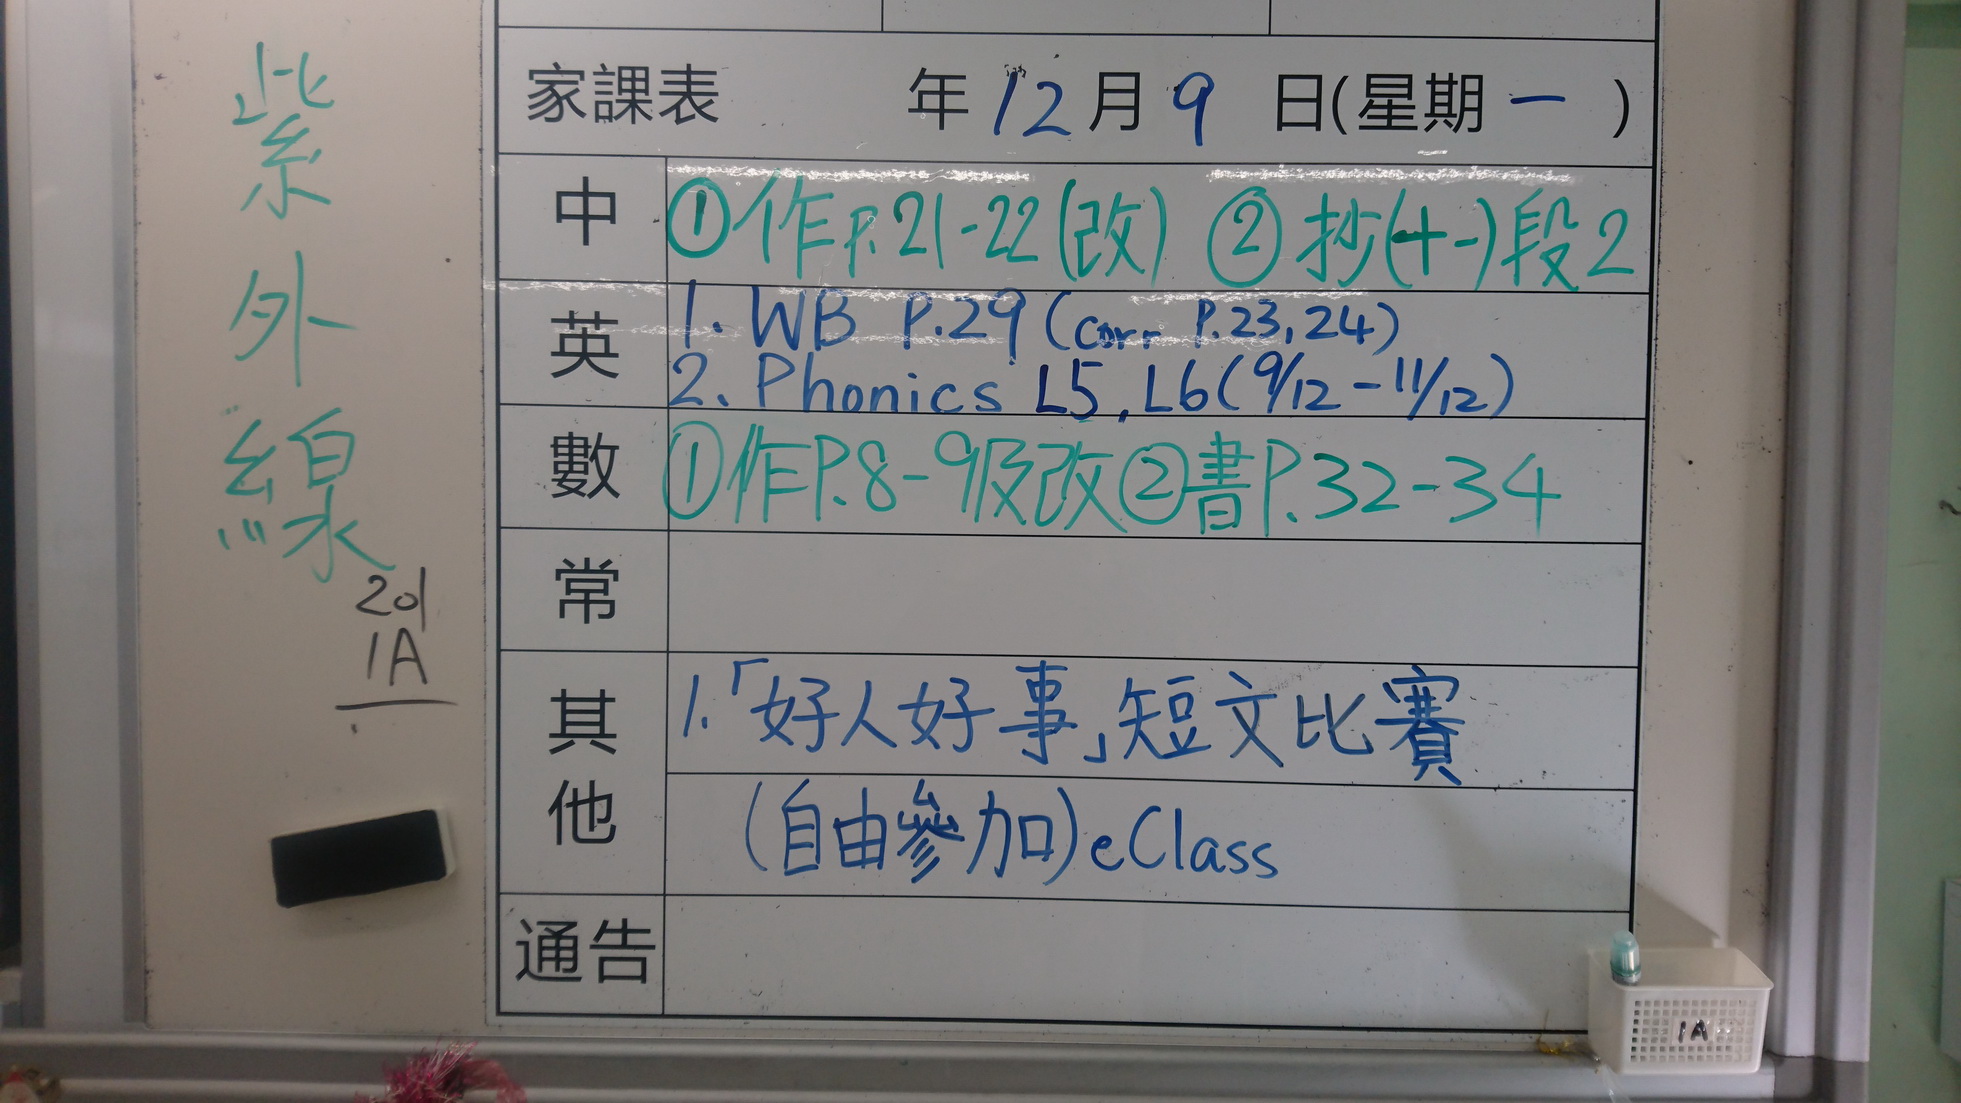 紫外線
201
1A
家課表 年12月9日(星期一)
中 ①作P.21-22(改) ②抄(十一)段2
英 1. WB P.29 (Corr P.23,24)
2. Phonics L5, L6(9/12-11/12)
數 ①作P.8-9及改②書P.32-34
常
其他 1.「好人好事」短文比賽
(自由參加)eClass
通告
1A